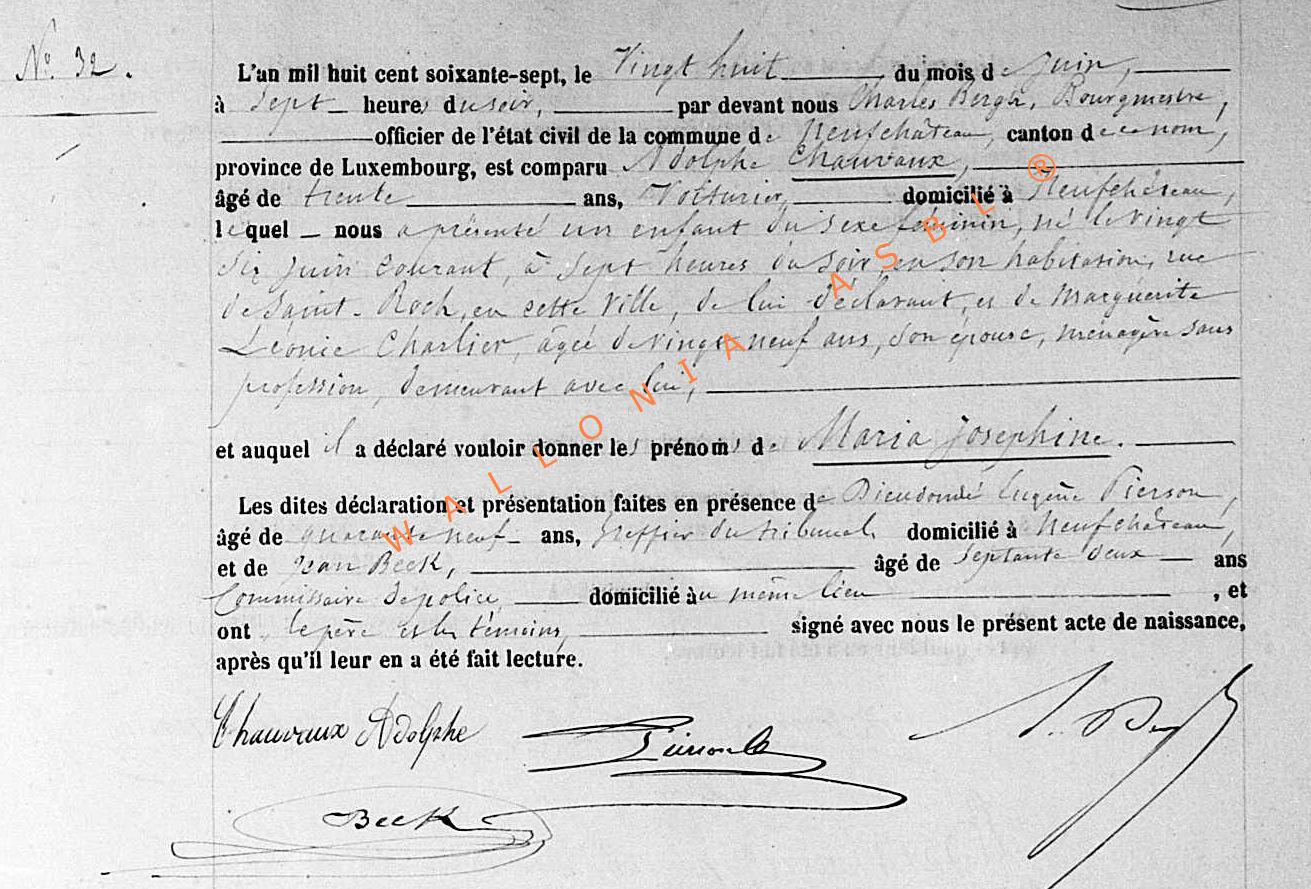 N° 32.
L'an mil huit cent soixante-sept, le Vingt huit du mois de Juin,
à Sept heures du soir, par devant nous Charles Bergh, Bourgmestre,
officier de l'état civil de la commune de Neufchâteau, canton de ce nom,
province de Luxembourg, est comparu Adolphe Chauvaux,
âgé de trente ans, Voiturier, domicilié à Neufchâteau,
lequel nous a présenté un enfant du sexe féminin, né le vingt
six Juin courant, à Sept heures du Soir, en son habitation, rue
de Saint-Roch, en cette Ville, de lui déclarant, et de Marguerite
Léonie Charlier, âgée de vingt neuf ans, son épouse, ménagère sans
profession, demeurant avec lui,
et auquel il a déclaré vouloir donner les prénoms de Maria Josephine.
Les dites déclaration et présentation faites en présence de Dieudonné Eugène Pierson,
âgé de quarante neuf ans, Greffier du tribunal, domicilié à Neufchâteau,
et de Jean Beck, âgé de Septante deux ans
Commissaire de police, domicilié au même lieu, et
ont, le père et les témoins, signé avec nous le présent acte de naissance,
après qu'il leur en a été fait lecture.
Chauvaux Adolphe
Beck
WALLONIA ASBL ®